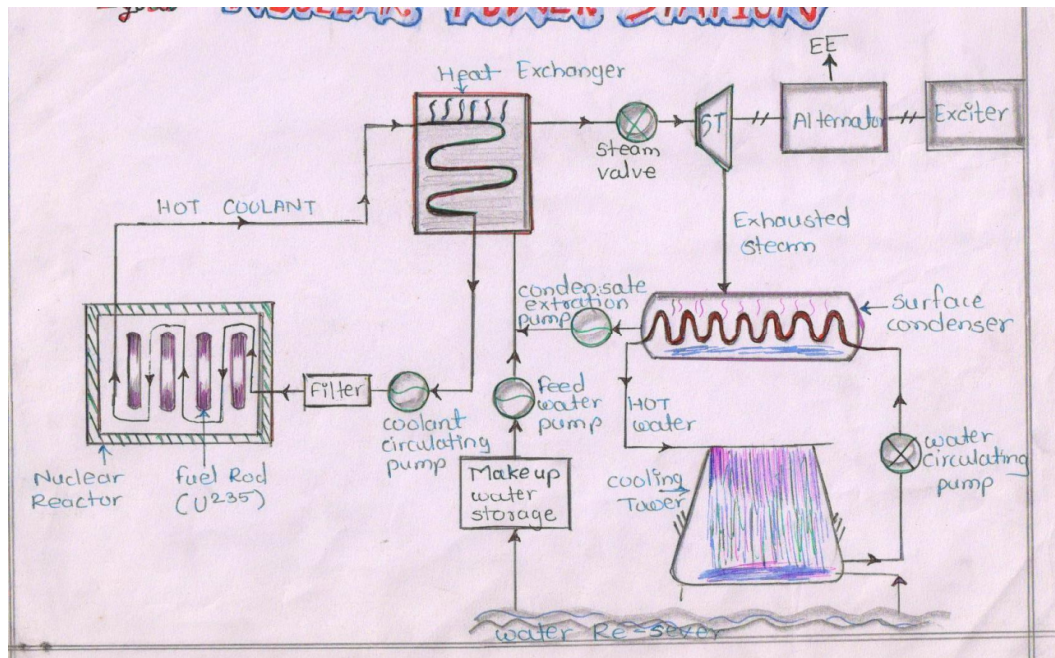 NUCLEAR POWER STATION
EE
Heat Exchanger
steam
valve
ST
Alternator
Exciter
HOT COOLANT
Exhausted
steam
condensate
extration
pump
surface
condenser
Filter
coolant
circulating
pump
feed
water
pump
HOT
water
water
circulating
pump
Nuclear
Reactor
fuel Rod
(U235)
Makeup
water
storage
cooling
Tower
water Re-sever